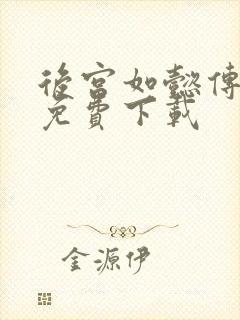 後宮如懿傳
免費下載
金源伊